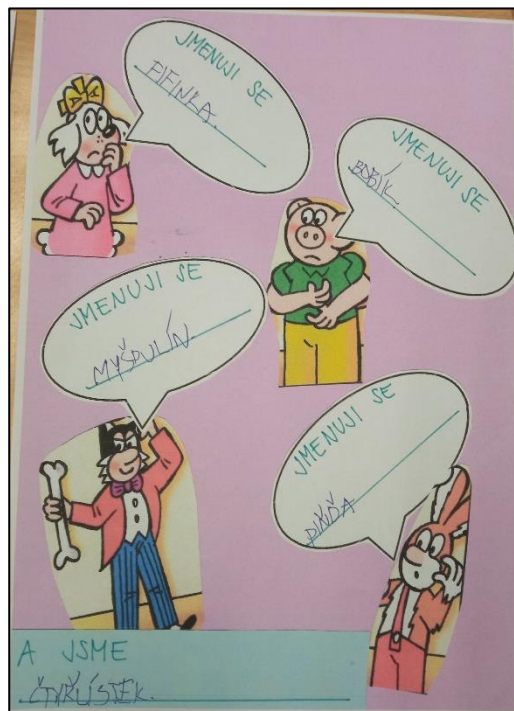 JMENUJI SE
FIFINKA.
JMENUJI SE
BOBÍK.
JMENUJI SE
MYŠPULÍN
JMENUJI SE
PIŇĎA
A JSME
ČTYŘLÍSTEK.